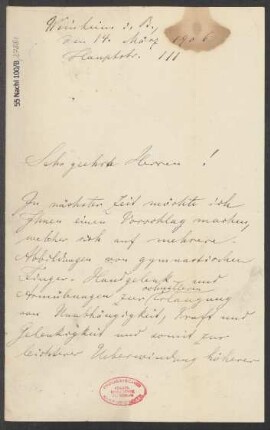 Weinheim a. B.,
den 14. März 1906
Hauptstr. 111
Sehr geehrte Herren!
In nächster Zeit möchte ich
Ihnen einen Vorschlag machen,
welcher sich auf mehrere
Abbildungen von gymnastischen
Finger- Handgelenk- und
Armübungen zur schnelleren Erlangung
von Unabhängigkeit, Kraft und
Gelenkigkeit und somit zur
leichteren Ueberwindung höherer
55 Nachl 100/B